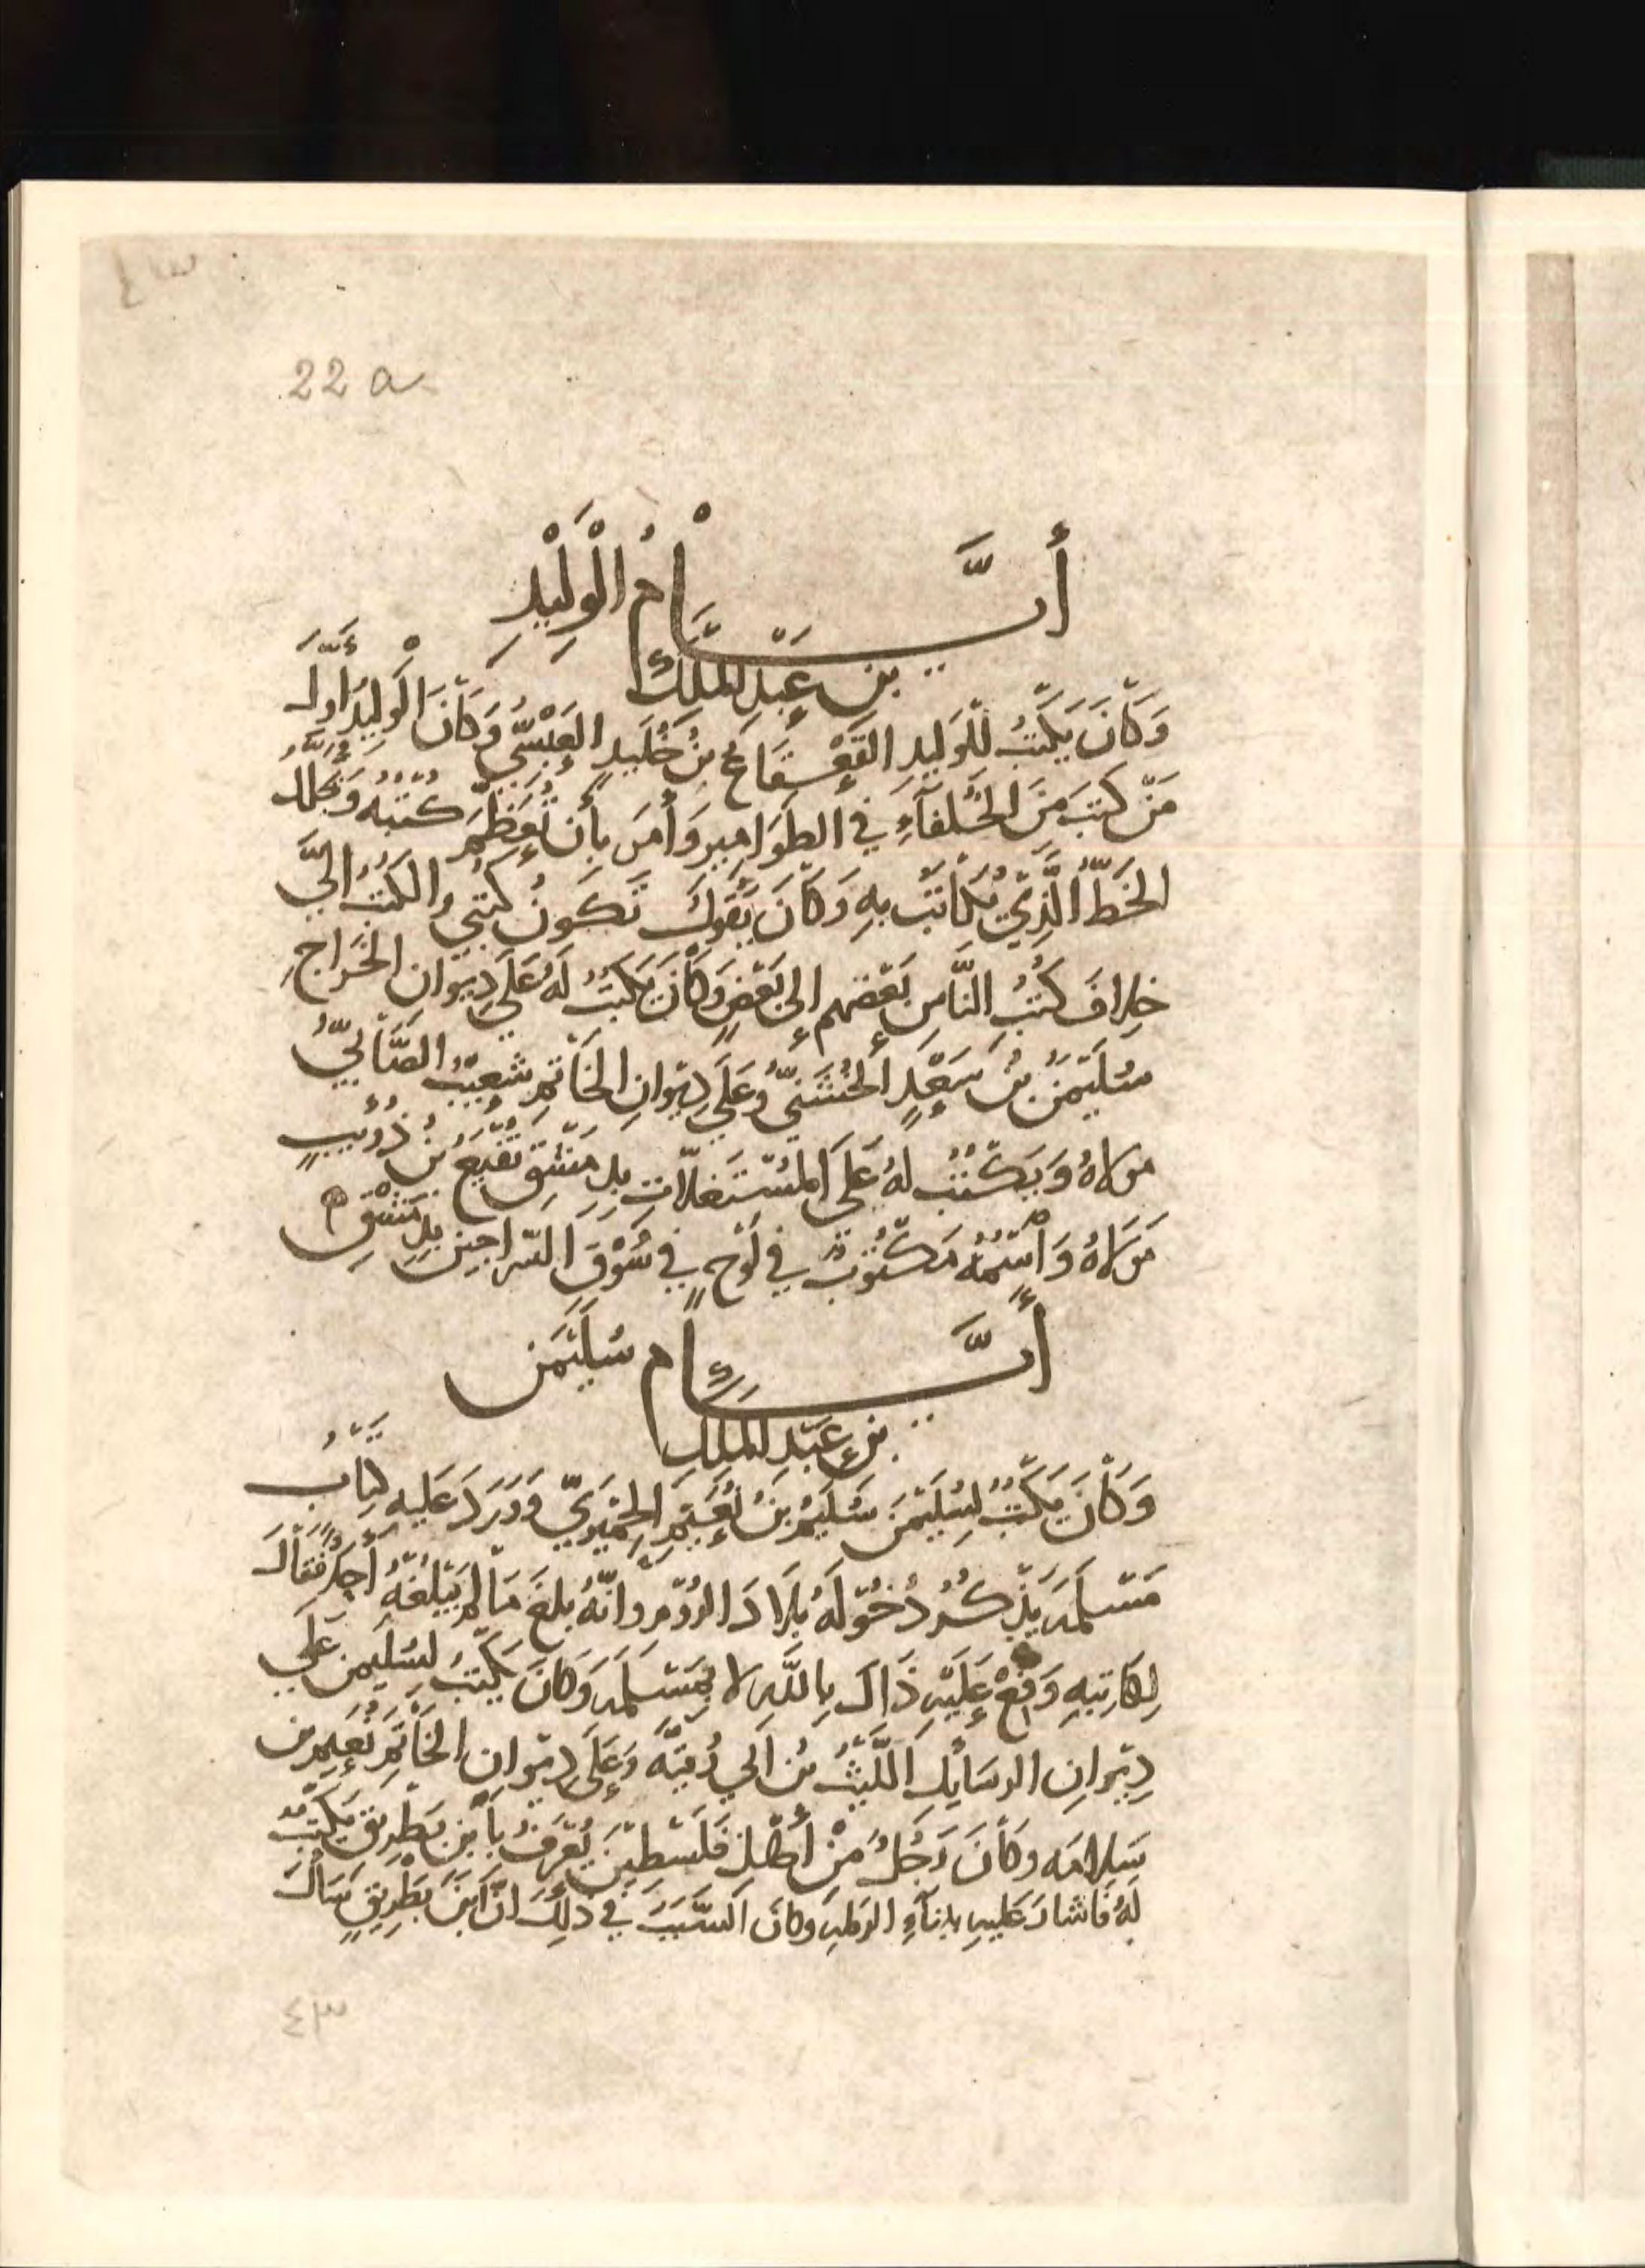 ٤٣
22 a
أيَّام الْوَلِيْدِ
بن عَبْدِ المَلِك
وَكَانَ يَكْتُبُ للْوَلِيدِ القَعْقَاعُ بنُ خُلَيدٍ العَبْسِيُّ وَكَانَ الوَلِيدُ أوَّلَ
مَنْ كتبَ مِنَ الخُلَفَآءِ في الطَوَامِيرِ وَأَمَرَ بأن تُعَظَّمَ كُتُبُهُ وَيُجَلَّلَ
الخَطُّ الَّذِي يُكَاتَبُ بهِ وَكَانَ يَقُولُ تَكونُ كُتبِي وَالكُتُبُ إلَيَّ
خِلافَ كُتُبِ النَّاسِ بَعْضِهم إلى بَعْضٍ وَكَانَ يَكْتبُ لَهُ عَلَى دِيوانِ الخَرَاجِ
سُلَيْمَنُ بنُ سَعْدٍ الخُشَنِيُّ وَعَلَى دِيْوانِ الخَاتَمِ شُعَيْبُ الصَّابِيُّ
مولاهُ وَيَكْتُبُ لهُ عَلَى المُسْتَغلاّتِ بِدِمَشْقَ نُفَيْعُ بنُ ذُؤَيْبٍ
مَولاهُ وَاسْمُهُ مَكْتُوبٌ في لَوْحٍ في سُوْقِ السَّراجِينَ بِدِمَشْقَ
أيَّام سُلَيْمَن
بن عَبْدِ المَلِك
وَكَانَ يَكْتُبُ لِسُلَيْمَنَ سُلَيْمُ بنُ نُعَيْمٍ الحِمْيَرِيُّ وَوَرَدَ عَلَيه كِتَابُ
مَسْلَمَه يَذْكُرُ دُخُوْلَهُ بِلَادَ الرُّوْمِ وَانَّهُ بلغَ مَا لم يَبْلُغْهُ أحَدٌ فقَالَ
لِكَاتِبِهِ وَقِّعْ عَلَيْهِ ذَاكَ بِاللَّهِ لا بِمَسْلَمَه وَكَانَ يَكْتبُ لِسُلَيمنَ عَلَى
دِيْوانِ الرسَايلِ اللَّيْثُ بنُ أَبي رُقيَّه وَعَلَى دِيْوانِ الخَاتَمِ نُعَيم بن
سَلامَه وَكَانَ رَجُلٌ مِنْ أَهْلِ فَلَسْطِيْنَ يُعْرَفُ بِأبْنِ بَطْرِيقٍ يَكْتبُ
لهُ فَاشَارَ عَليهِ بِبِنآءِ الرَملهِ وكَانَ السَّبَبُ في ذَلِكَ انَّ ابْنَ بَطْرِيقٍ سَأَلَ
٤٣